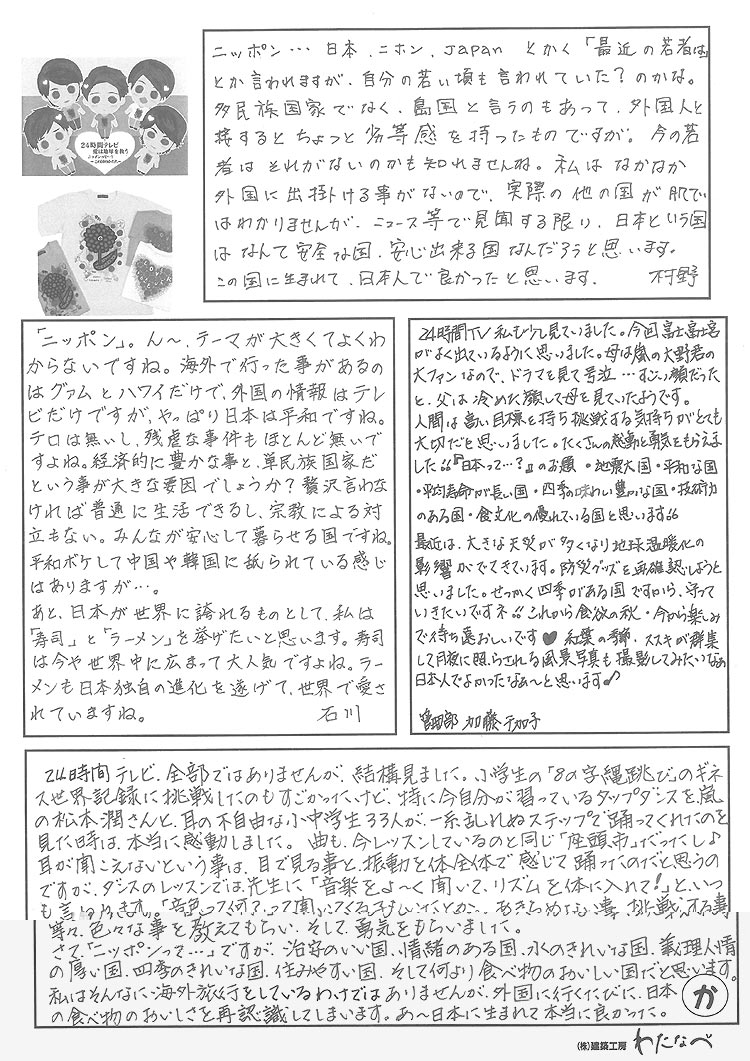 ニッポン… 日本、ニホン、JAPAN とかく「最近の若者は」
とか言われますが、自分の若い頃も言われていた？のかな。
多民族国家でなく、島国と言うのもあって、外国人と
接するとちょっと劣等感を持ったものですが。今の若
者はそれがないのかも知れませんね。私はなかなか
外国に出掛ける事がないので、実際の他の国が肌で
はわかりませんが、ニュース等で見聞する限り、日本という国
はなんて安全な国、安心出来る国なんだろうと思います。
この国に生まれて、日本人で良かったと思います。 村野
24時間テレビ
愛は地球を救う
「ニッポン」。ん～、テーマが大きくてよくわ
からないですね。海外で行った事があるの
はグァムとハワイだけで、外国の情報はテレ
ビだけですが、やっぱり日本は平和ですね。
テロは無いし、残虐な事件もほとんど無いで
すよね。経済的に豊かな事と、単民族国家だ
という事が大きな要因でしょうか？贅沢言わな
ければ普通に生活できるし、宗教による対
立もない。みんなが安心して暮らせる国ですね。
平和ボケして中国や韓国に舐られている感じ
はありますが…。
あと、日本が世界に誇れるものとして、私は
「寿司」と「ラーメン」を挙げたいと思います。寿司
は今や世界中に広まって大人気ですよね。ラー
メンも日本独自の進化を遂げて、世界で愛さ
れていますね。 石川
24時間TV 私も少し見ていました。今回富士富士宮
がよく出ているように思いました。母は嵐の大野君の
大ファンなので、ドラマを見て号泣…すごい顔だった
と、父は冷めた顔して母を見ていたようです。
人間は高い目標を持ち挑戦する気持ちがとても
大切だと思いました。たくさんの感動と勇気をもらえま
した。『日本って…？』のお題 ・地震大国・平和な国
・平均寿命が長い国・四季の味わい豊かな国・技術力
のある国・食文化の優れている国と思います
最近は、大きな天災が多くなり地球温暖化の
影響がでてきています。防災グッズを再確認しようと
思いました。せっかく四季がある国ですから、守って
いきたいですネ!! これから食欲の秋・今から楽しみ
で待ち遠おしいです♥ 紅葉の季節、ススキが群集
して月夜に照らされる風景写真も撮影してみたいなぁ
日本人でよかったなぁ～と思います♪
加藤
24時間テレビ、全部ではありませんが、結構見ました。小学生の「8の字縄跳び」のギネ
ス世界記録に挑戦したのもすごかったけど、特に今自分が習っているタップダンスを、嵐
の松本潤さんと、耳の不自由な小中学生33人が、一糸乱れぬステップで踊ってくれたのを
見た時は、本当に感動しました。曲も、今レッスンしているのと同じ「座頭市」だったし♪
耳が聞こえないという事は、目で見る事と、振動を体全体で感じて踊ったのだと思うの
ですが、ダンスのレッスンでは先生に「音楽をよ～く聞いて、リズムを体に入れて!」といつ
も言われます。
等々、色々な事を教えてもらい、そして勇気をもらいました。
さて「ニッポンって…」ですが、治安のいい国、情緒のある国、水のきれいな国、義理人情
の厚い国、四季のきれいな国、住みやすい国、そして何より食べ物のおいしい国だと思います。
私はそんなに海外旅行をしているわけではありませんが、外国に行くたびに、日本
の食べ物のおいしさを再認識してしまいます。あ～日本に生まれて本当に良かった。
か
(株)建築工房 わたなべ